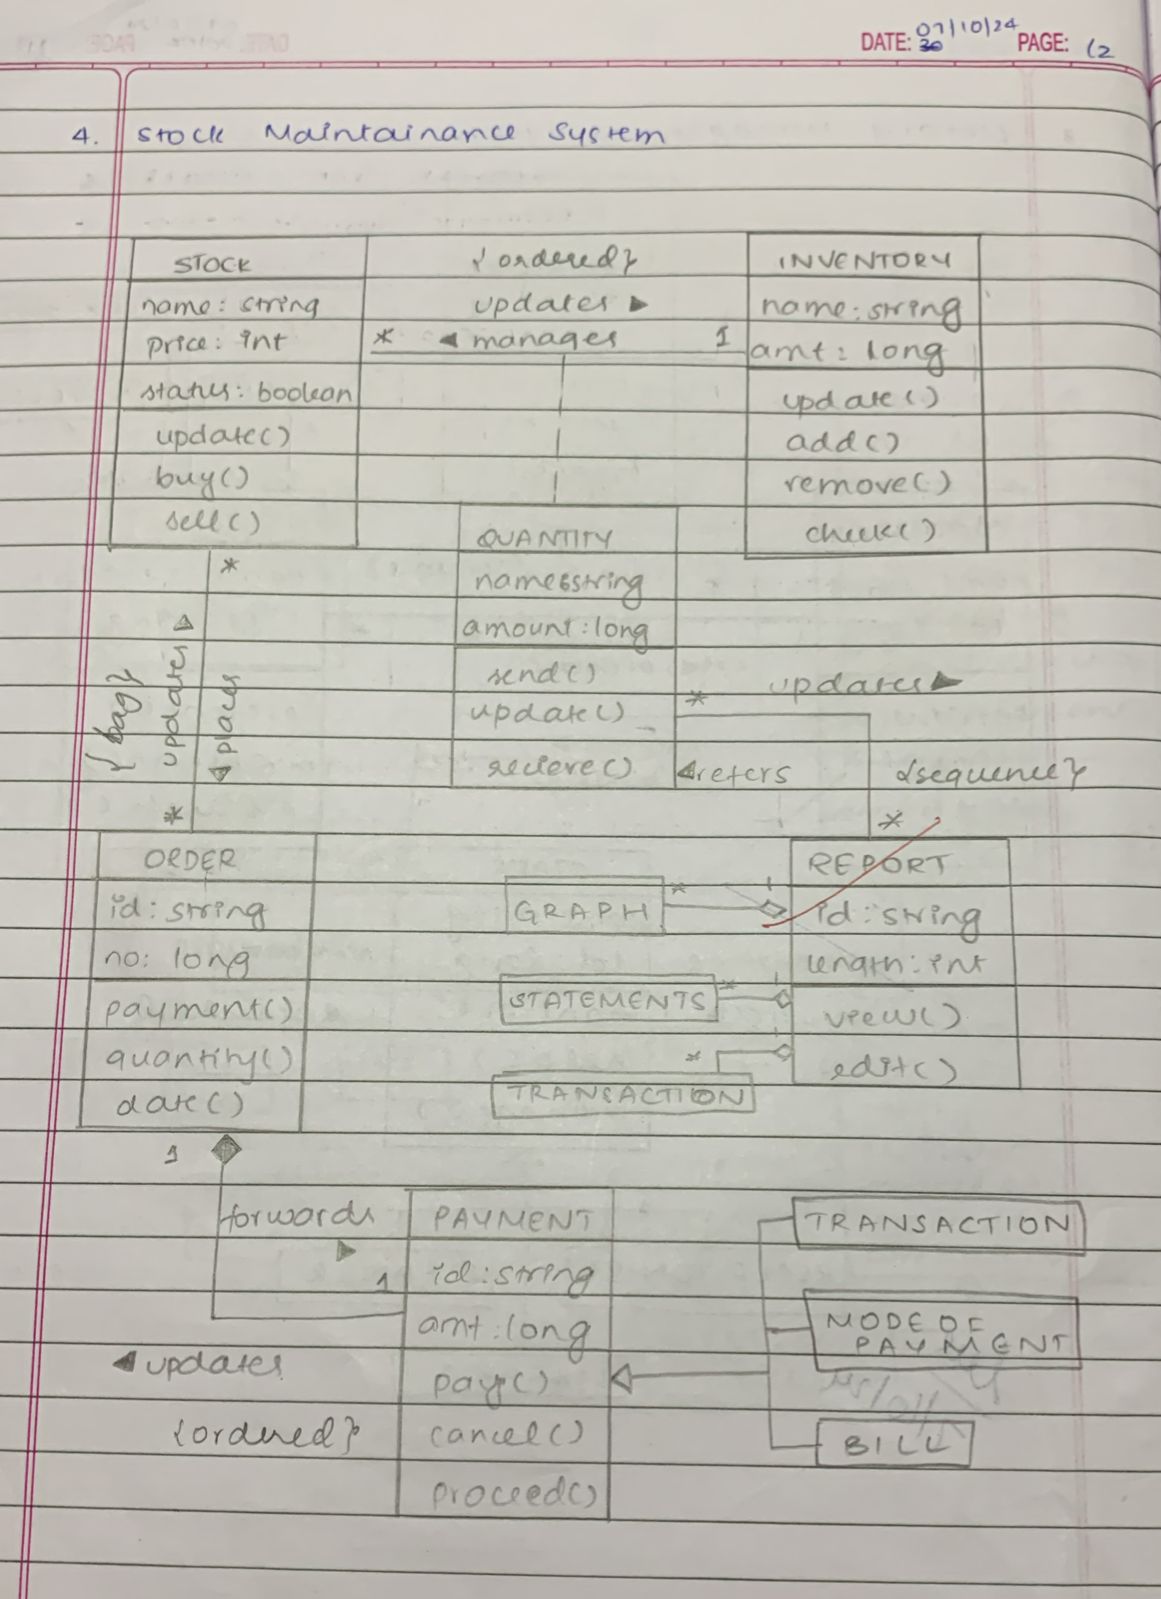 DATE: 07/10/24 PAGE: 12
4. Stock Maintainance System
STOCK
name: string
price: int
status: boolean
update()
buy()
sell()
{ordered}
updates ▶
* ◀ manages 1
INVENTORY
name: string
amt: long
update()
add()
remove()
check()
QUANTITY
name: string
amount: long
send()
update()
recieve()
*
{bag}
updates
places
*
* updates ▶
◀ refers {sequence}
*
ORDER
id: string
no: long
payment()
quantity()
date()
GRAPH * 1
STATEMENTS * 1
* 1
TRANSACTION
REPORT
id: string
length: int
view()
edit()
1
forwards ▶
1
◀ updates
{ordered}
PAYMENT
id: string
amt: long
pay()
cancel()
proceed()
TRANSACTION
MODE OF
PAYMENT
BILL